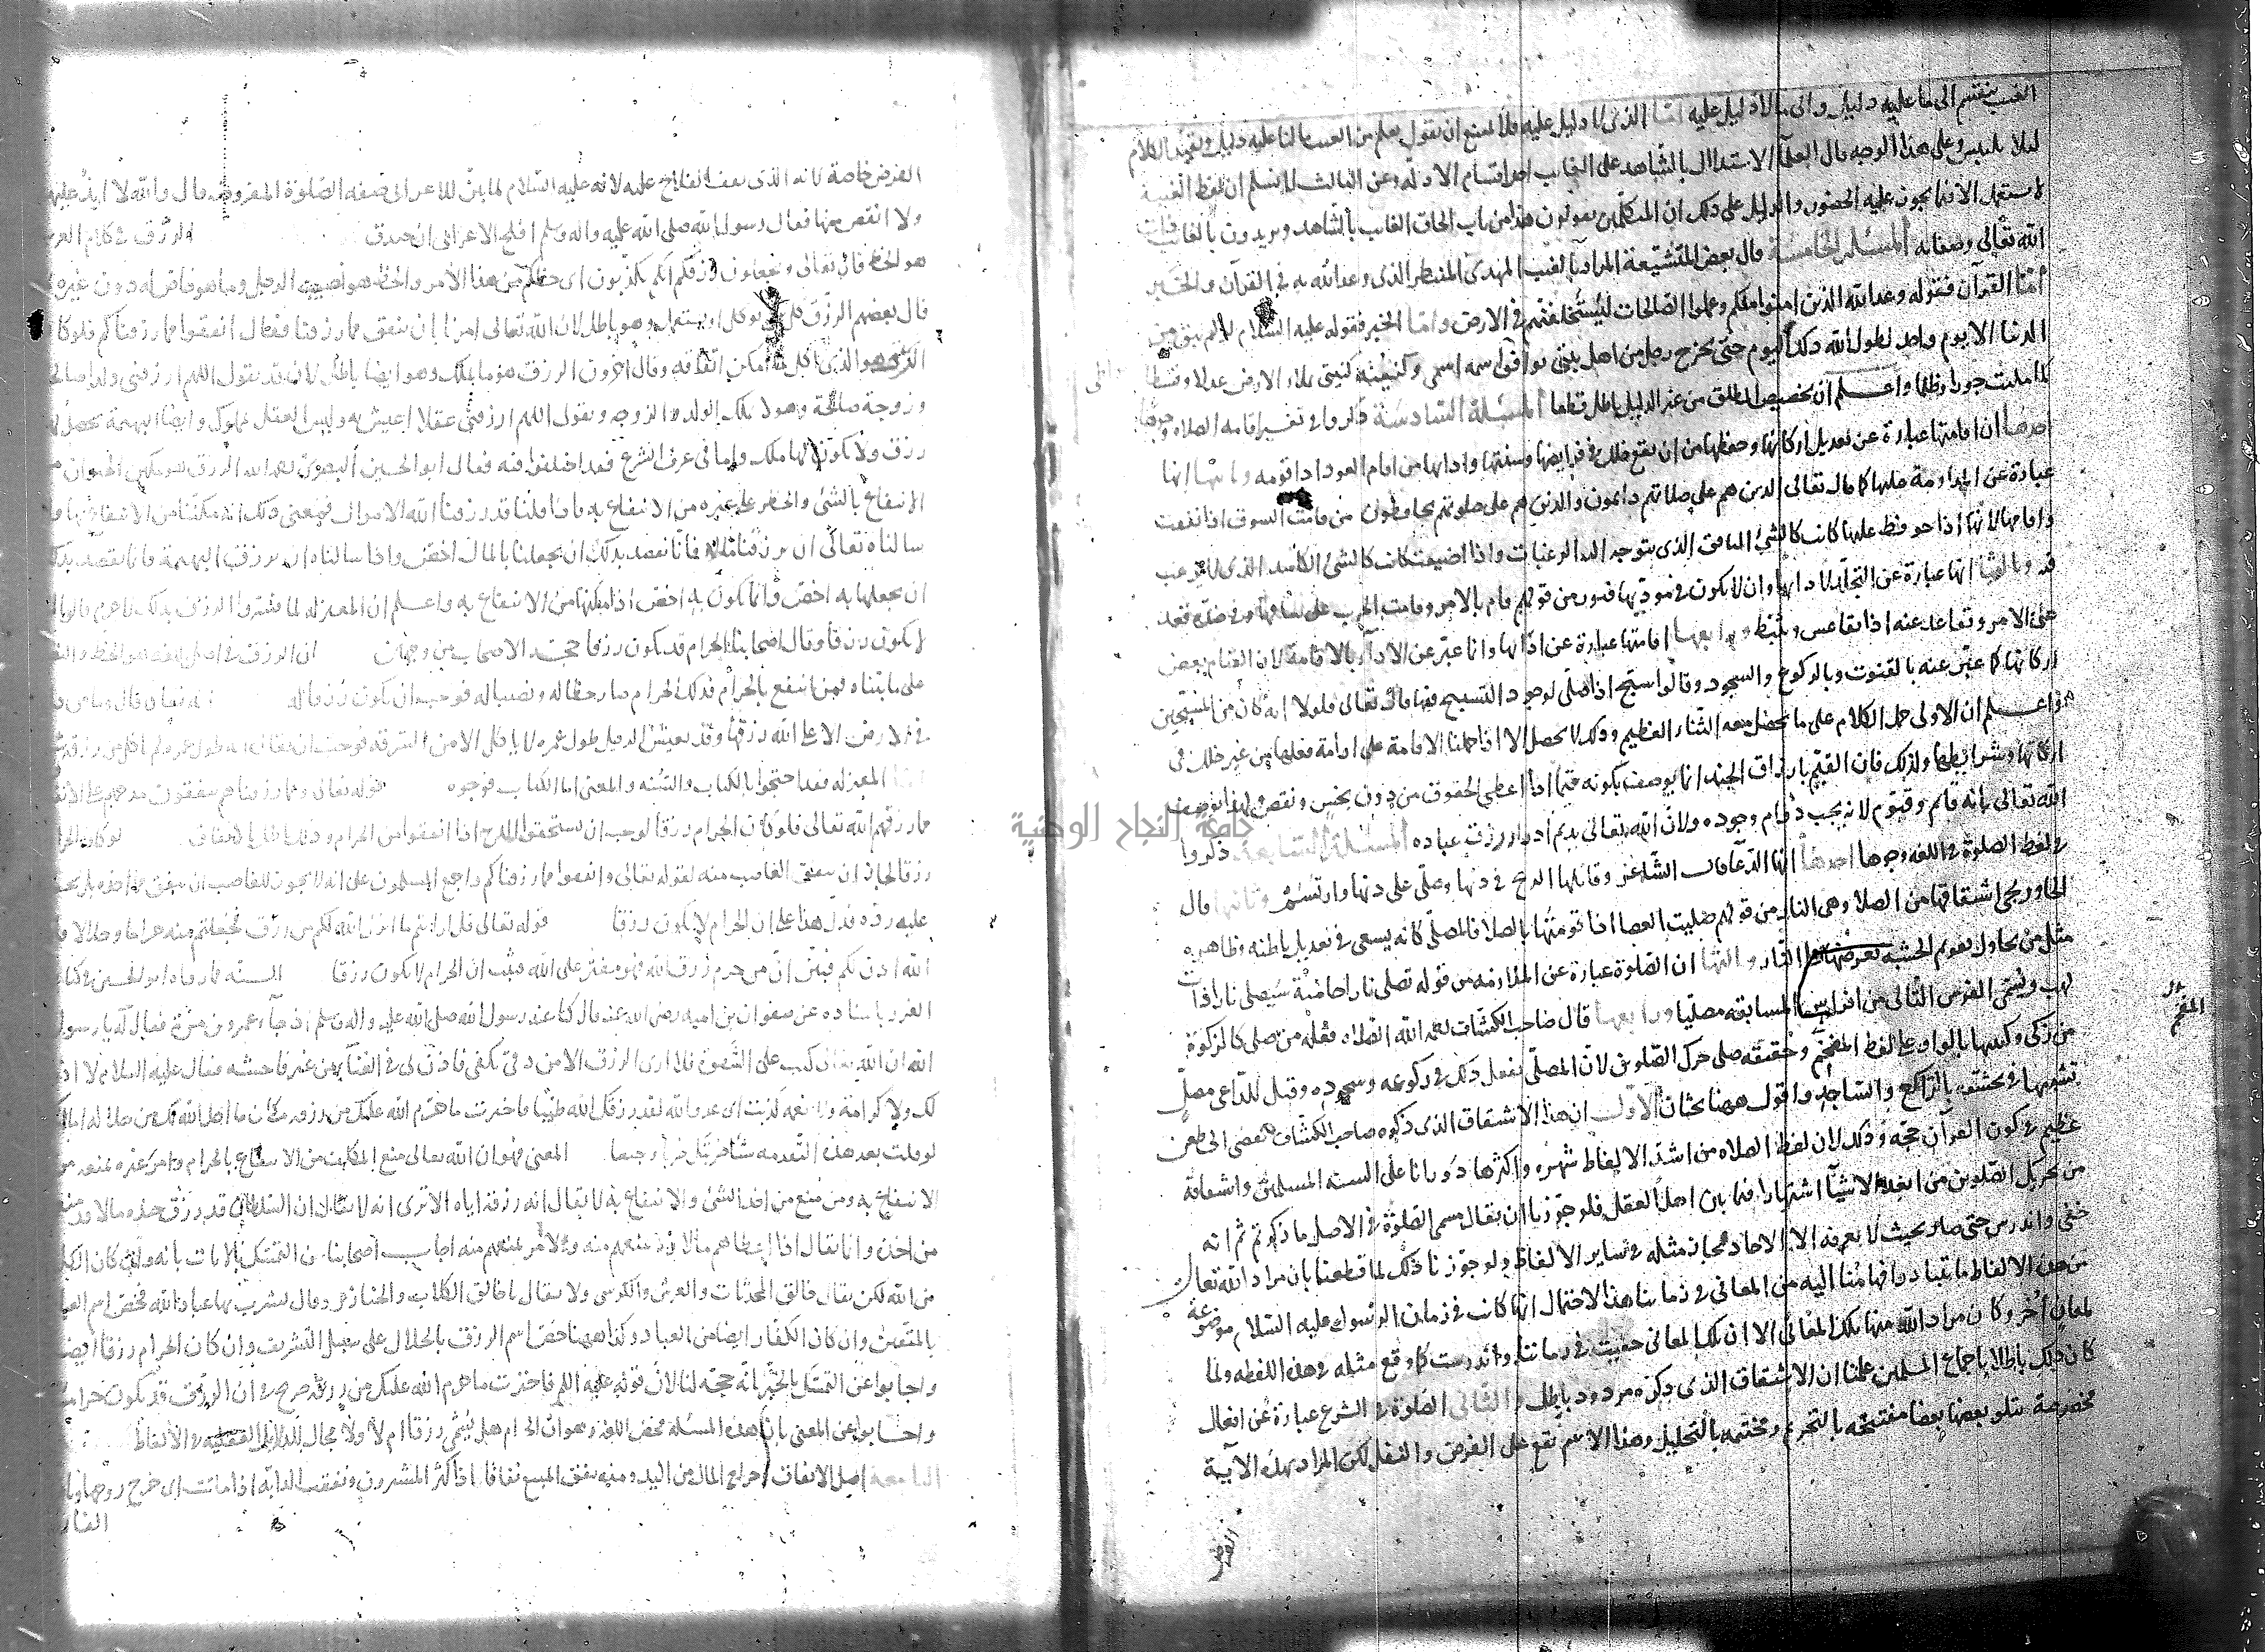 الغيب ينقسم الى ما عليه دليل والى ما لا دليل عليه اما الذى لا دليل عليه فلا يمتنع ان نقول نعلم من الغيب ما لنا عليه دليل ونفيد الكلام
لئلا يلتبس وعلى هذا الوجه قال العلماء الاستدلال بالشاهد على الغايب احد اقسام الادلة وعن الثالث لا نسلم ان لفظ الغيبة
لا يستعمل الا فيما يجوز عليه الحضور والدليل على ذلك ان المتكلمين يقولون هذا من باب الحاق الغايب بالشاهد ويريدون بالغايب ذات
الله تعالى وصفاته المسئلة الخامسة قال بعض المتشيعة المراد بالغيب المهدى المنتظر الذى وعد الله به فى القرآن والخبر
امّا القرآن فقوله وعد الله الذين امنوا منكم وعملوا الصالحات ليستخلفنهم فى الارض وامّا الخبر فقوله عليه السلام لو لم يبق من
الدنيا الا يوم واحد لطول الله ذلك اليوم حتى يخرج رجل من اهل بيتى يواطى اسمه اسمى وكنيته كنيتى يملاء الارض عدلا وقسطا
كما ملئت جورا وظلما واعلم ان تخصيص المطلق من غير الدليل باطل قطعا المسئلة السادسة ذكروا فى تفسير اقامة الصلاة وجوها
احدها ان اقامتها عبارة عن تعديل اركانها وحفظها من ان يقع خلل فى فرايضها وسننها وادابها من اقام العود اذا قومه وثانيها انها
عبارة عن المداومة عليها كما قال تعالى الذين هم على صلاتهم دايمون والذين هم على صلوتهم يحافظون من قامت السوق اذا نفقت
واقامها لانها اذا حوفظ عليها كانت كالشئ النافق الذى يتوجه اليه الرغبات واذا اضيعت كانت كالشئ الكاسد الذى لا يرغب
فيه وثالثها انها عبارة عن التجلد لادائها وان لا يكون فى مؤديها فتور من قولهم قام بالامر وقامت الحرب على ساقها وفى ضده قعد
على الامر وتقاعد عنه اذا تقاعس وتثبط ورابعها اقامتها عبارة عن ادائها وانما عبر عن الادآء بالاقامة لان القيام بعض
اركانها كما عبّر عنه بالقنوت وبالركوع والسجود وقالوا سبّح اذا صلى لوجود التسبيح فيها قال تعالى فلولا انه كان من المسبحين
واعلم ان الاولى حمل الكلام على ما يحصل معه الثناء العظيم وذلك لا يحصل الا اذا حملنا الاقامة على ادامة فعلها من غير خلل فى
اركانها وشرايطها ولذلك فان القيم بارزاق الجند انما يوصف بكونه قيما اذا اعطى الحقوق من دون بخس ونقص ولهذا يوصف
الله تعالى بانه قايم وقيوم لانه يجب دوام وجوده ولان الله تعالى يديم ادرار رزق عباده المسئلة السابعة ذكروا
فى لفظ الصلوة فى اللغة وجوها احدها انها الدعآ قال الشاعر وقابلها الريح فى دنها وصلى على دنها وارتسم وثانيها قال
الخارزنجى اشتقاقها من الصلا وهى النار من قولهم صليت العصا اذا قومتها بالصلا فالمصلى كانه يسعى فى تعديل باطنه وظاهره
مثل من يحاول تقويم الخشبة بعرضها على النار وثالثها ان الصلوة عبارة عن الملازمة من قوله تصلى نارا حامية سيصلى نارا ذات
لهب وسمى الفرس الثانى من افراس المسابقة مصليا ورابعها قال صاحب الكشاف رحمه الله الصلاة فعلة من صلى كالزكوة
من زكى وكتبتها بالواو على لفظ المفخم وحقيقة صلى حرك الصلوين لان المصلى يفعل ذلك فى ركوعه وسجوده وقيل للداعى مصل
تشبيها فى تخشعه بالراكع والساجد واقول ههنا بحثان الاول ان هذا الاشتقاق الذى ذكره صاحب الكشاف يفضى الى طعن
عظيم فى كون القرآن حجة وذلك لان لفظ الصلاة من اشد الالفاظ شهرة واكثرها دورانا على السنة المسلمين واشتقاقه
من تحريك الصلوين من ابعد الاشيآ اشتهارا فيما بين اهل العقل فلو جوزنا ان يقال مسمى الصلوة فى الاصل ما ذكره ثم انه
خفى واندرس حتى صار بحيث لا يعرفه الا الاحاد لجاز مثله فى ساير الالفاظ ولو جوزنا ذلك لما قطعنا بان مراد الله تعالى
من هذه الالفاظ ما يتبادر افهامنا اليه من المعانى فى زماننا هذا لاحتمال انها كانت فى زمان الرسول عليه السلام موضوعة
لمعان أخر وكان مراد الله منها تلك المعانى الا ان تلك المعانى خفيت فى زماننا واندرست كما وقع مثله فى هذه اللفظة ولما
كان ذلك باطلا باجماع المسلمين علمنا ان الاشتقاق الذى ذكره مردود باطل والثانى الصلوة فى الشرع عبارة عن افعال
مخصوصة يتلو بعضها بعضا مفتتحة بالتحريم ومختتمة بالتحليل وهذا الاسم يقع على الفرض والنفل لكن المراد بهذه الآية
الفرض
المفخم
الفرض خاصة لانه الذى يقف الفلاح عليه لانه عليه السلام لما بين للاعرابى صفة الصلوة المفروضة قال والله لا ازيد عليها
ولا انقص منها فقال رسول الله صلى الله عليه وآله وسلم افلح الاعرابى ان صدق الرزق فى كلام العرب
هو الحظ قال تعالى وتجعلون رزقكم انكم تكذبون اى حظكم من هذا الامر والحظ هو نصيب الرجل وما هو خاص له دون غيره
قال بعضهم الرزق كل شئ يوكل او يستعمل وهو باطل لان الله تعالى امرنا ان ننفق مما رزقنا فقال انفقوا مما رزقناكم فلو كان
الرزق هو الذى يوكل لما امكن انفاقه وقال اخرون الرزق هو ما يملك وهو ايضا باطل لان قد يقول اللهم ارزقنى ولدا صالحا
وزوجة صالحة وهو لا يملك الولد ولا الزوجة ويقول اللهم ارزقنى عقلا اعيش به وليس العقل بمملوك وايضا البهيمة تحصل لها
رزق ولا يكون لها ملك واما فى عرف الشرع فقد اختلفوا فيه فقال ابو الحسين البصرى رحمه الله الرزق هو تمكين الحيوان من
الانتفاع بالشئ والحظر على غيره من الانتفاع به فاذا قلنا قد رزقنا الله الاموال فمعنى ذلك انه مكننا من الانتفاع بها واذا
سالناه تعالى ان يرزقنا مالا فانا نقصد بذلك ان يجعلنا بالمال اخص واذا سالناه ان يرزق البهيمة فانا نقصد بذلك
ان يجعلها به اخص وانما تكون به اخص اذا مكنها من الانتفاع به واعلم ان المعتزلة لما فسروا الرزق بذلك لا جرم قالوا الحرام
لا يكون رزقا وقال اصحابنا الحرام قد يكون رزقا حجة الاصحاب من وجهين ان الرزق فى اصل اللغة هو الحظ والنصيب
على ما بيناه فمن انتفع بالحرام فذلك الحرام صار حظا له ونصيبا له فوجب ان يكون رزقا له انه تعالى قال وما من دابة
فى الارض الا على الله رزقها وقد يعيش الرجل طول عمره لا ياكل الا من السرقة فوجب ان يقال انه طول عمره لم ياكل من رزقه شيئا
اما المعتزلة فقد احتجوا بالكتاب والسنة والمعنى اما الكتاب فوجوه قوله تعالى ومما رزقناهم ينفقون مدحهم على الانفاق
مما رزقهم الله تعالى فلو كان الحرام رزقا لوجب ان يستحقوا المدح اذا انفقوا من الحرام وذلك باطل بالاتفاق لو كان الحرام
رزقا لجاز ان ينفق الغاصب منه لقوله تعالى وانفقوا مما رزقناكم واجمع المسلمون على انه لا يجوز للغاصب ان ينفق مما اخذه بل يجب
عليه رده فدل هذا على ان الحرام لا يكون رزقا قوله تعالى قل ارايتم ما انزل الله لكم من رزق فجعلتم منه حراما وحلالا قل
الله اذن لكم فبين ان من حرم رزق الله فهو مفتر على الله فثبت ان الحرام لا يكون رزقا السنة فما رواه ابو الحسين فى كتاب
الغرر باسناده عن صفوان بن امية رضى الله عنه قال كنا عند رسول الله صلى الله عليه وآله وسلم اذ جآء عمرو بن مرة فقال له يا رسول
الله ان الله تعالى كتب على الشقوة فلا ارى ارزق الا من دفى بكفى فاذن لى فى الغنآء من غير فاحشة فقال عليه السلام لا اذن
لك ولا كرامة ولا نعمة كذبت اى عدو الله لقد رزقك الله طيبا فاخترت ما حرم الله عليك من رزقه مكان ما احل الله لك من حلاله اما انك
لو قلت بعد هذه التقدمة شيئا ضربتك ضربا وجيعا المعنى فهو ان الله تعالى منع المكلف من الانتفاع بالحرام وامر غيره بمنعه من
الانتفاع به ومن منع من اخذ الشئ والانتفاع به لا يقال انه رزقه اياه الا ترى انه لا يقال ان السلطان قد رزق جنده مالا قد منعهم
من اخذه وانما يقال اذا اعطاهم مالا ولم يمنعهم منه ولا امر بمنعهم منه اجاب اصحابنا عن التمسك بالايات بانه وان كان الكل
من الله لكن يقال خالق المحدثات والعرش والكرسى ولا يقال يا خالق الكلاب والخنازير وقال يشرب بها عباد الله فخص اسم العباد
بالمتقين وان كان الكفار ايضا من العباد وكذا ههنا خص اسم الرزق بالحلال على سبيل التشريف وان كان الحرام رزقا ايضا
واجابوا عن التمسك بالخبر بانه حجة لنا لان قوله عليه السلام فاخترت ما حرم الله عليك من رزقه صريح فى ان الرزق قد يكون حراما
واجابوا عن المعنى بان هذه المسئلة محض اللغة وهو ان الحرام هل يسمى رزقا ام لا ولا مجال للدلايل العقلية فى الالفاظ
التاسعة اصل الانفاق اخراج المال من اليد ومنه نفق المبيع نفاقا اذا كثر المشترون ونفقت الدابة اذا ماتت اى خرج روحها
الفار
جامعة النجاح الوطنية